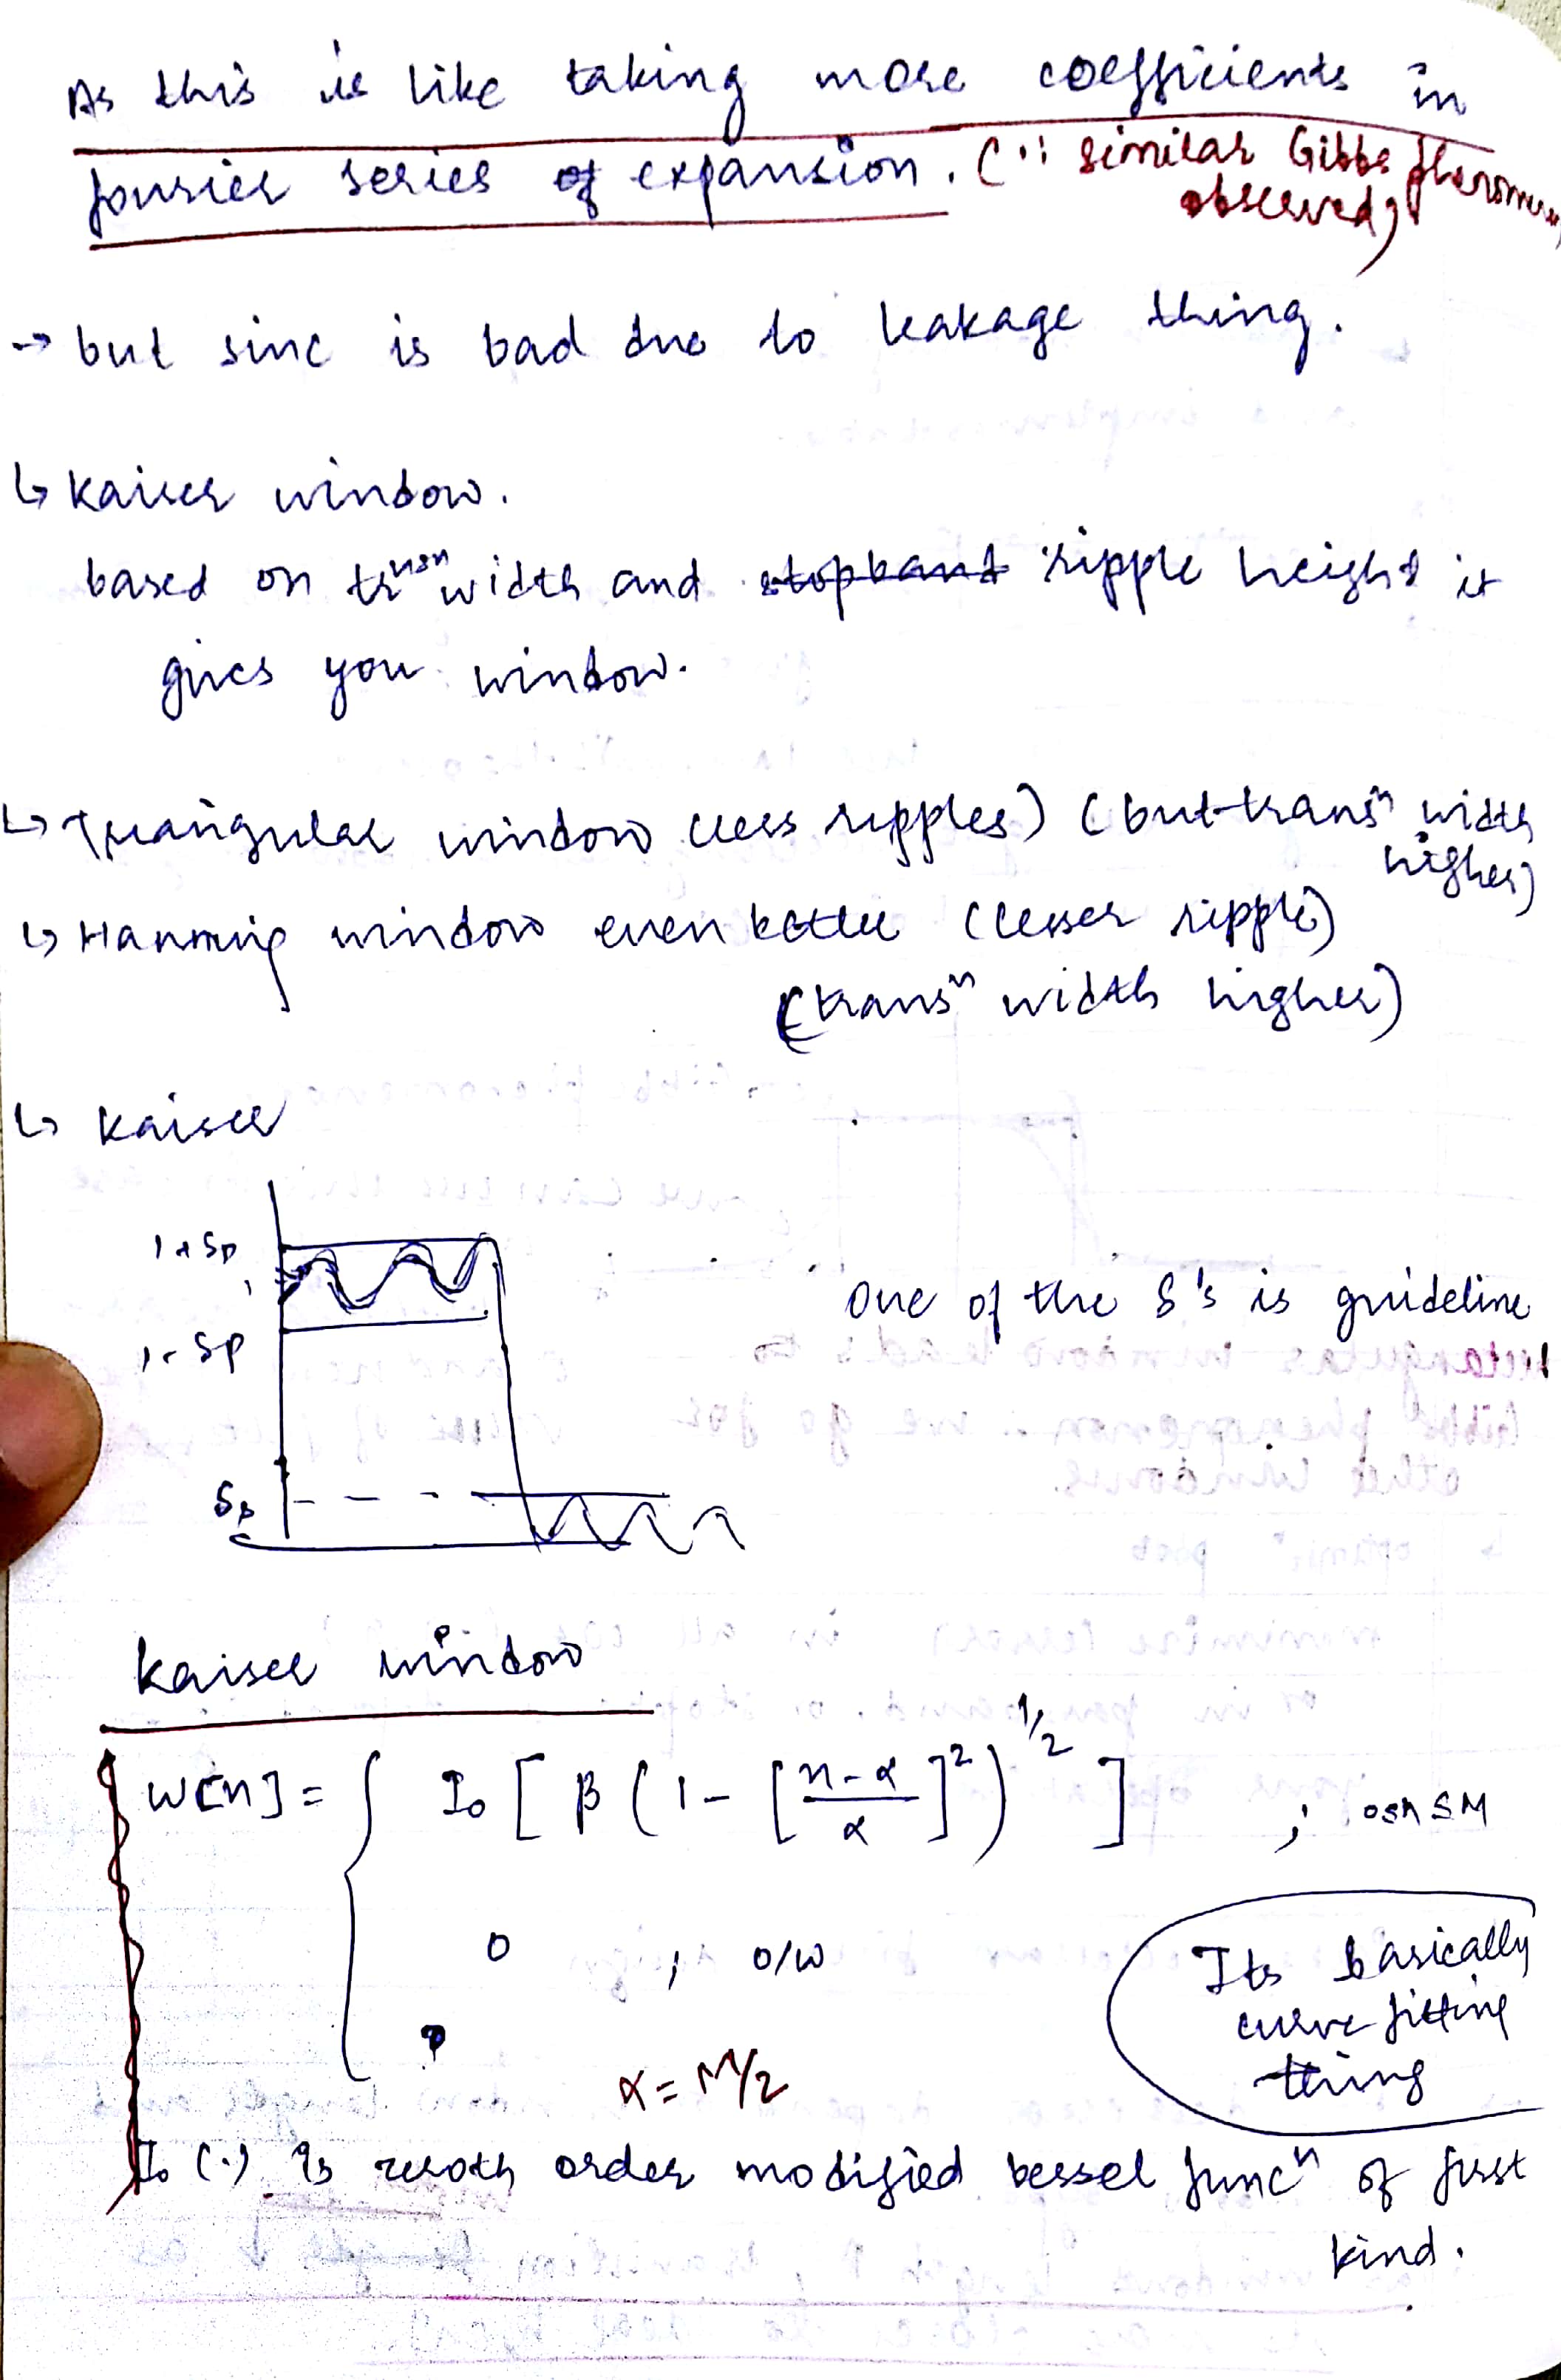 As this is like taking more coefficients in
fourier series of expansion. (∵ similar Gibbs
observed)
→ but sinc is bad due to leakage thing.
↳ Kaiser window.
based on trnsn width and stopband ripple height it
gives you window.
↳ Triangular window (less ripples) (but transn width
higher)
↳ Hamming window even better (lesser ripple)
(transn width higher)
↳ Kaiser
1+δp
1
1-δp
δs
One of the δ's is guideline
Kaiser window
w[n] = { I₀ [ β ( 1 - [ (n-α)/α ]² )^1/2 ] ; 0≤n≤M
0 , o/w
Its basically
curve fitting
thing
α = M/2
I₀(.) is zeroth order modified bessel funcn of first
kind.